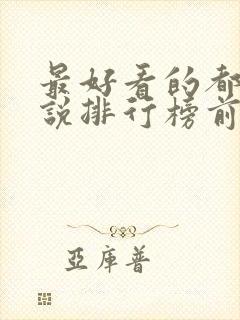 最好看的都
說排行榜前
亞庫普